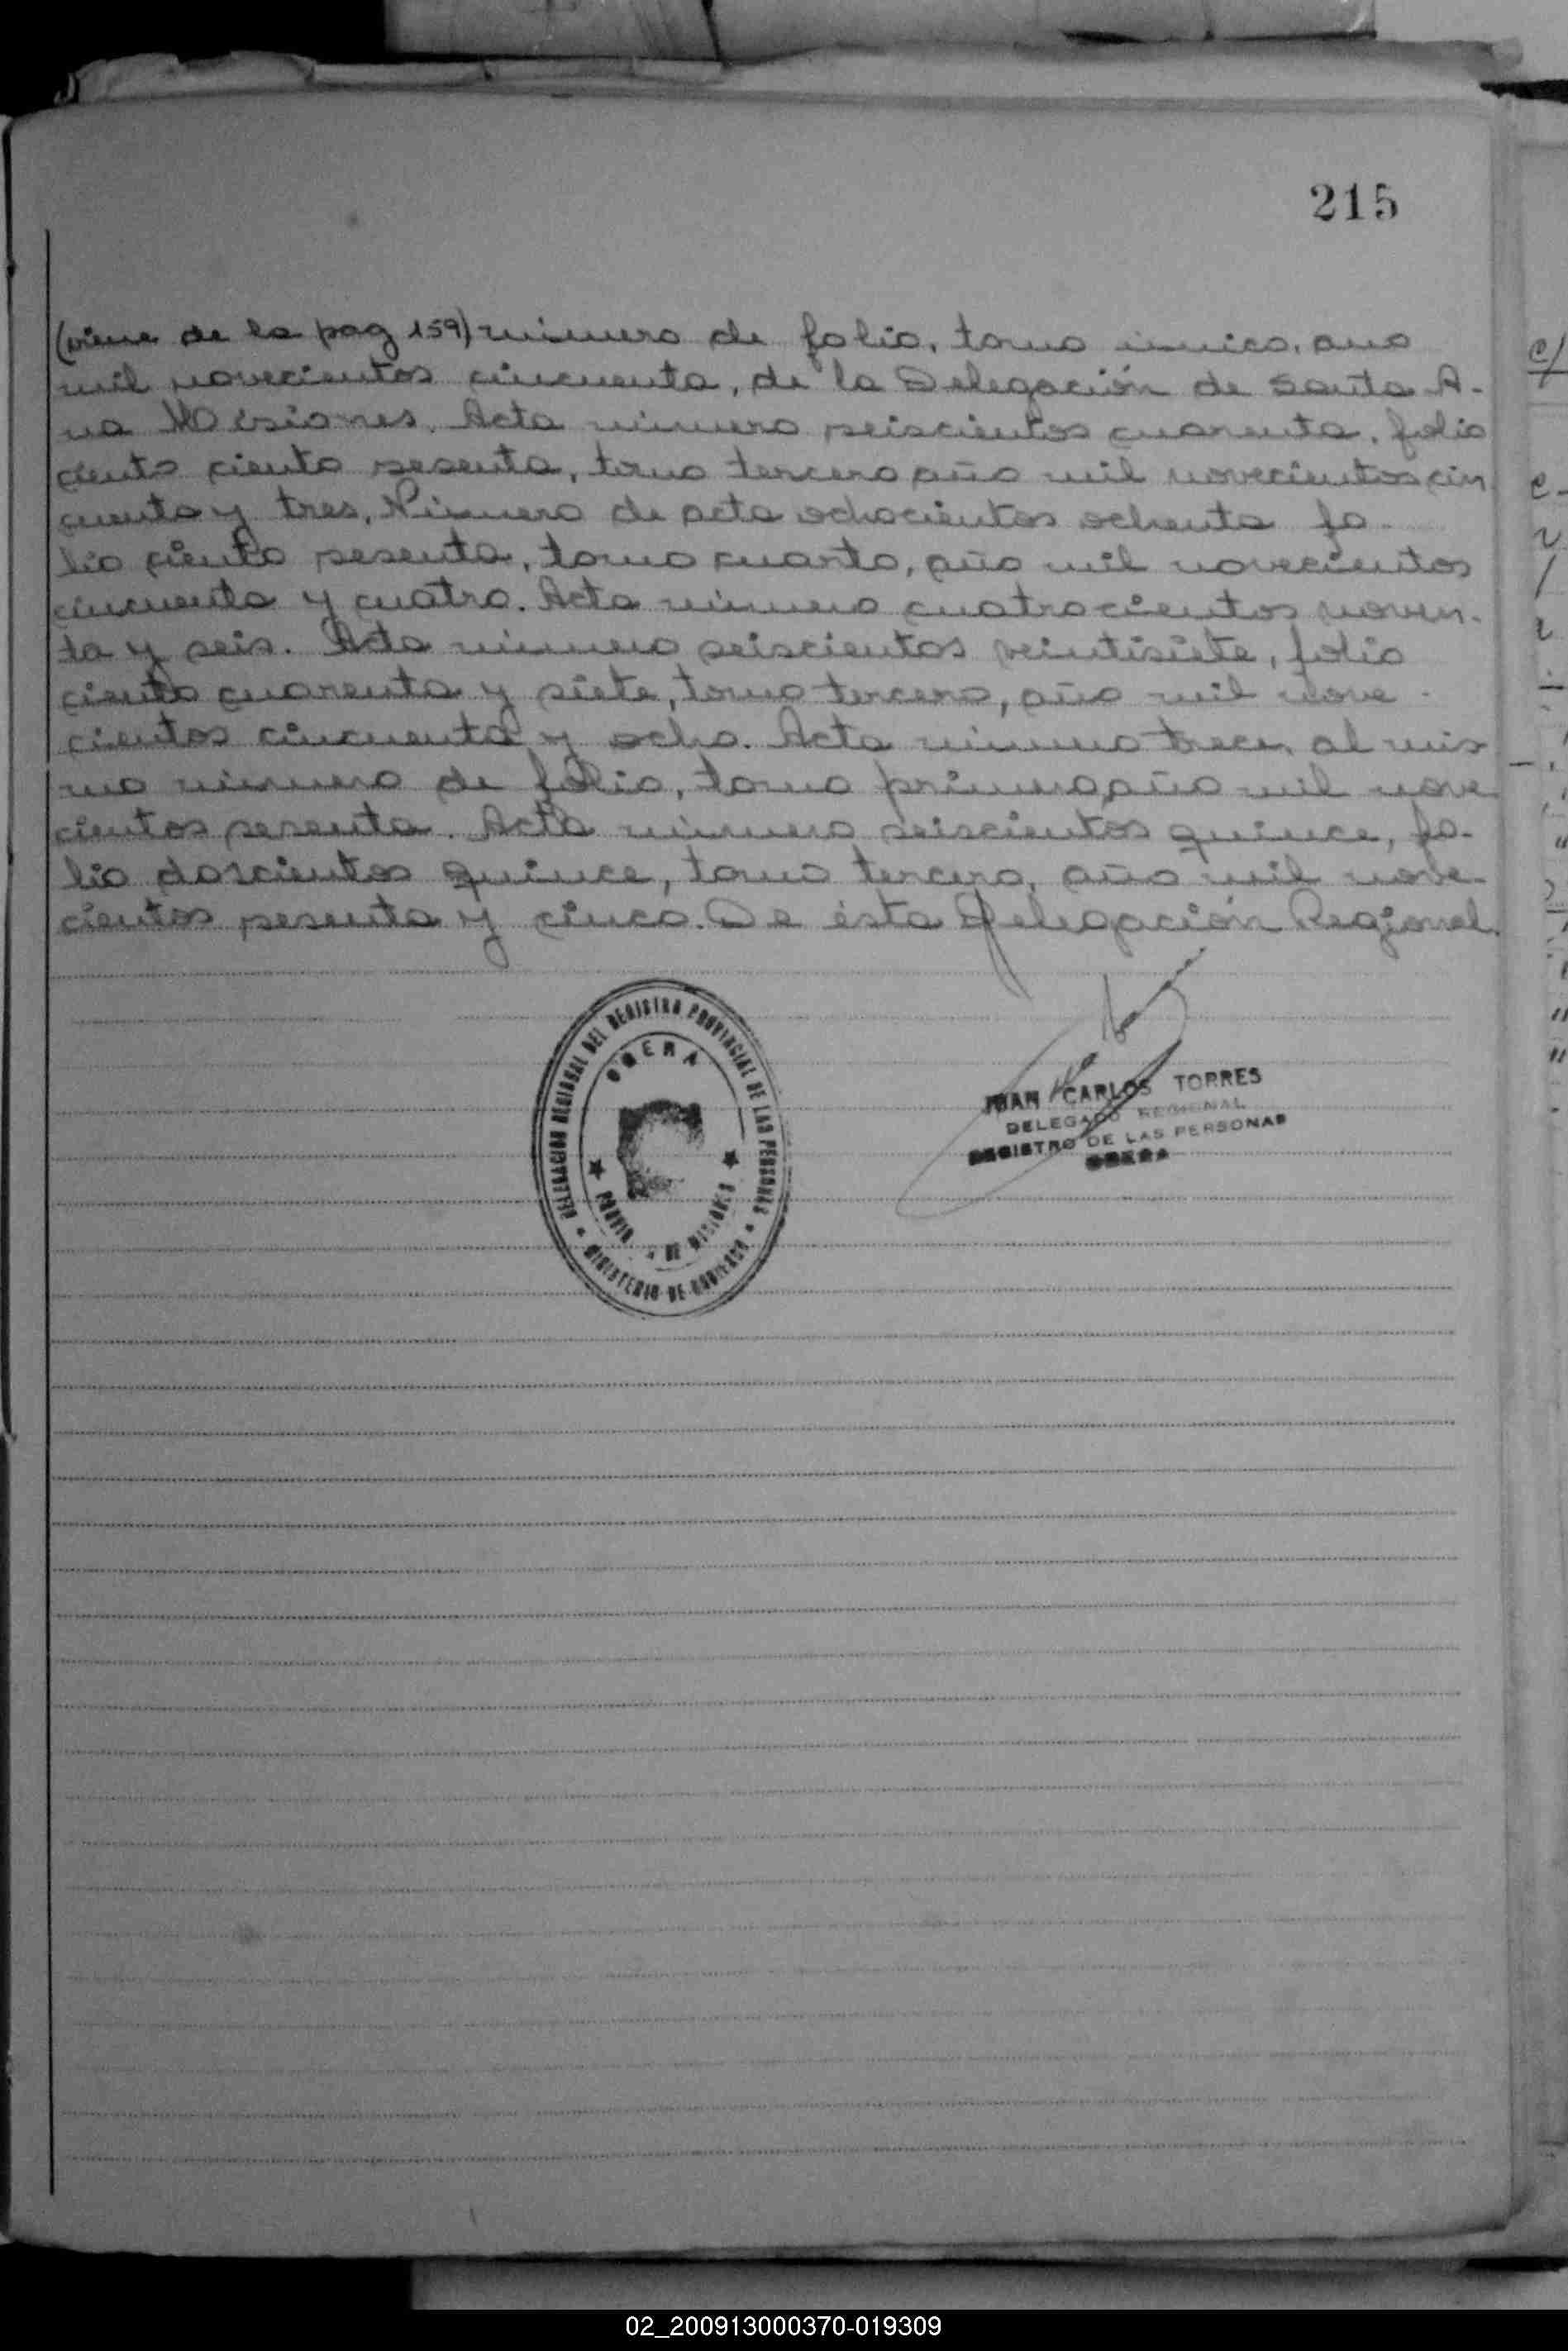 215
(viene de la pag 159) número de folio, tomo único, ano
mil novecientos cincuenta, de la Delegación de Santa A-
na Misiones. Acta número seiscientos cuarenta, folio
ciento ciento sesenta, tomo tercero año mil novecientos cin
cuenta y tres, Número de acta ochocientos ochenta fo-
lio ciento sesenta, tomo cuarto, año mil novecientos
cincuenta y cuatro. Acta número cuatrocientos noven-
ta y seis. Acta número seiscientos veintisiete, folio
ciento cuarenta y siete, tomo tercero, año mil nove-
cientos cincuenta y ocho. Acta número trece, al mis
mo número de folio, tomo primero, año mil nove
cientos sesenta. Acta número seiscientos quince, fo-
lio doscientos quince, tomo tercero, año mil nove-
cientos sesenta y cinco. De ésta Delegación Regional.
DELEGACION REGIONAL DEL REGISTRO PROVINCIAL DE LAS PERSONAS
OBERA
DE MISIONES
MINISTERIO DE GOBIERNO
JUAN CARLOS TORRES
DELEGADO REGIONAL
REGISTRO DE LAS PERSONAS
OBERA
02_200913000370-019309